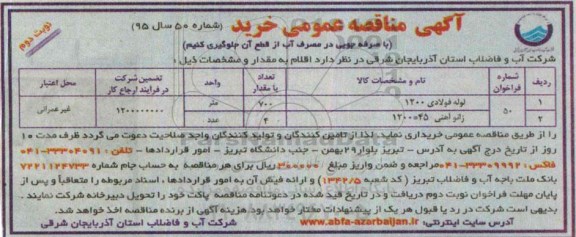 نوبت دوم
آگهی مناقصه عمومی خرید (شماره ۵۰ سال ۹۵)
(با صرفه جویی در مصرف آب از قطع آن جلوگیری کنیم)
شرکت آب و فاضلاب استان آذربایجان شرقی در نظر دارد اقلام به مقدار و مشخصات ذیل:
ردیف شماره فراخوان نام و مشخصات کالا تعداد یا مقدار واحد تضمین شرکت در فرایند ارجاع کار محل اعتبار
۱ ۵۰ لوله فولادی ۱۲۰۰ ۷۰۰ متر ۱۲۰۰۰۰۰۰۰ غیر عمرانی
۲ زانو آهنی ۴۵*۱۲۰۰ ۴ عدد
را از طریق مناقصه عمومی خریداری نماید. لذا از تامین کنندگان و تولید کنندگان واجد صلاحیت دعوت می گردد ظرف مدت ۱۰
روز از تاریخ درج آگهی به آدرس - تبریز بلوار ۲۹ بهمن - جنب دانشگاه تبریز - امور قراردادها - تلفن: ۳۳۳۰۴۰۹۱-۰۴۱
فاکس: ۳۳۳۰۹۹۹۲-۰۴۱ مراجعه و ضمن واریز مبلغ ۳۰۰۰۰۰ ریال برای هر مناقصه به حساب جام شماره ۷۲۲۱۱۲۴۷۳۳
بانک ملت باجه آب و فاضلاب تبریز (کد شعبه ۱۳۴۲/۵) و ارائه فیش آن به امور قراردادها، اسناد مربوطه را متعاقباً و پس از
پایان مهلت فراخوان نوبت دوم دریافت و در تاریخ قید شده در دعوتنامه مناقصه پاکت خود را تحویل دبیرخانه شرکت نمایند.
بدیهی است شرکت در رد یا قبول هر یک از پیشنهادات مختار خواهد بود. هزینه آگهی از برنده مناقصه اخذ خواهد شد.
آدرس سایت اینترنتی: www.abfa-azarbaijan.ir شرکت آب و فاضلاب استان آذربایجان شرقی